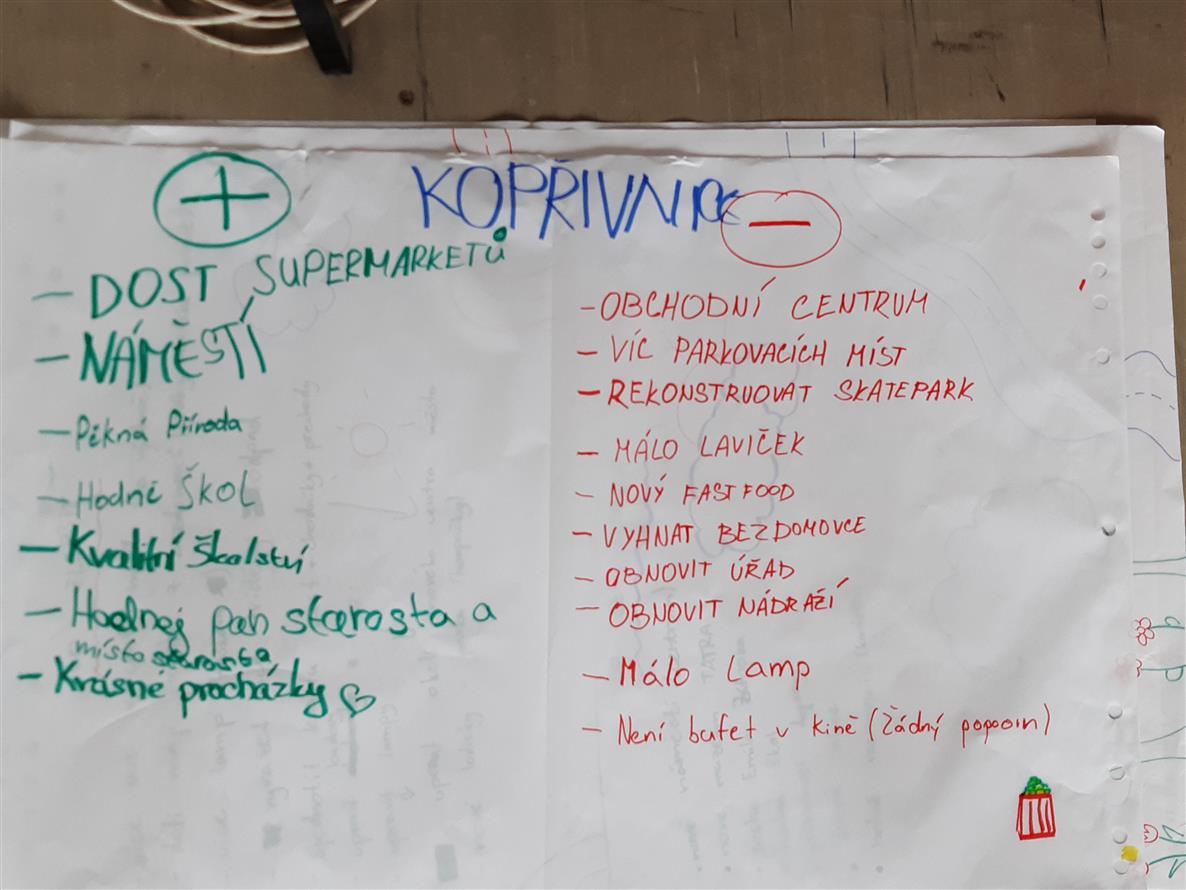 KOPŘIVNICE
+
- DOST SUPERMARKETŮ
- NÁMĚSTÍ
- Pěkná Příroda
- Hodně Škol
- Kvalitní školství
- Hodnej pan starosta a
místo starosta
- Krásné procházky ♡
-
- OBCHODNÍ CENTRUM
- VÍC PARKOVACÍCH MÍST
- REKONSTRUOVAT SKATEPARK
- MÁLO LAVIČEK
- NOVÝ FASTFOOD
- VYHNAT BEZDOMOVCE
- OBNOVIT ÚŘAD
- OBNOVIT NÁDRAŽÍ
- Málo Lamp
- Není bufet v kině (Žádný popcorn)